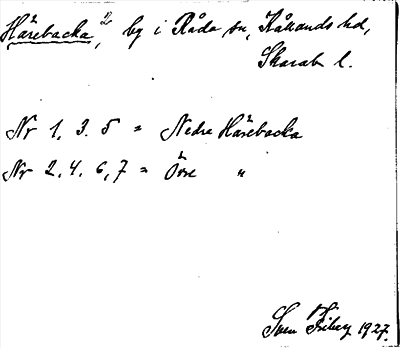 Hårebacka, 2 by i Råda sn, Kållands hd,
Skarab. l.
Nr 1. 3. 5 = Nedre Hårebacka
Nr 2. 4. 6, 7 = Övre "
Sven Friberg 1927.